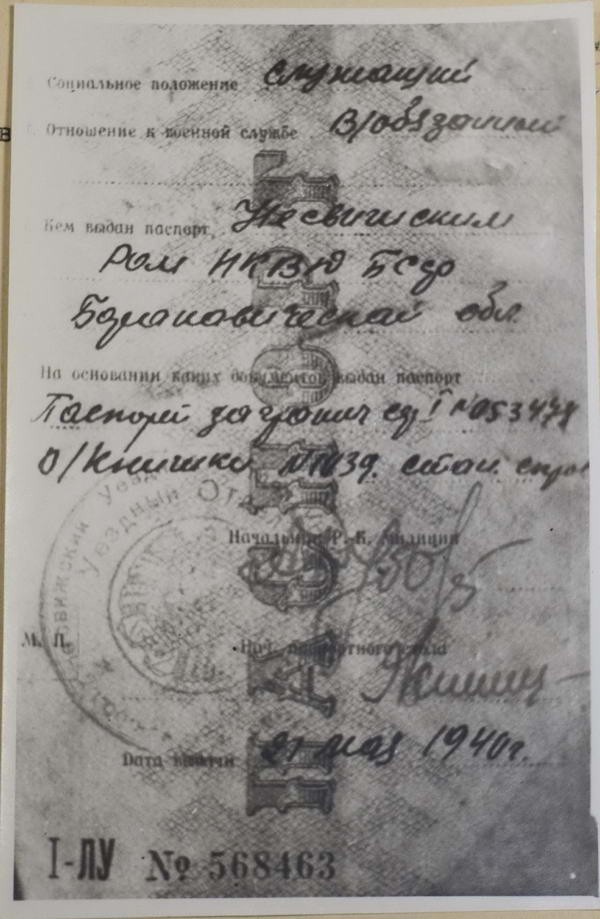 Социальное положение служащий
Отношение к военной службе в/обязанный
Кем выдан паспорт Несвижским
Ром НКВД БССР
Барановической обл.
На основании каких документов выдан паспорт
Паспорт загранич сер I № 053478
в/книжка стан.
Начальник Р.-К. милиции
М. П.
Нач. паспортного стола
Дата выдачи 21 мая 1940г.
ПАСПОРТ
Уездный
I-ЛУ № 568463